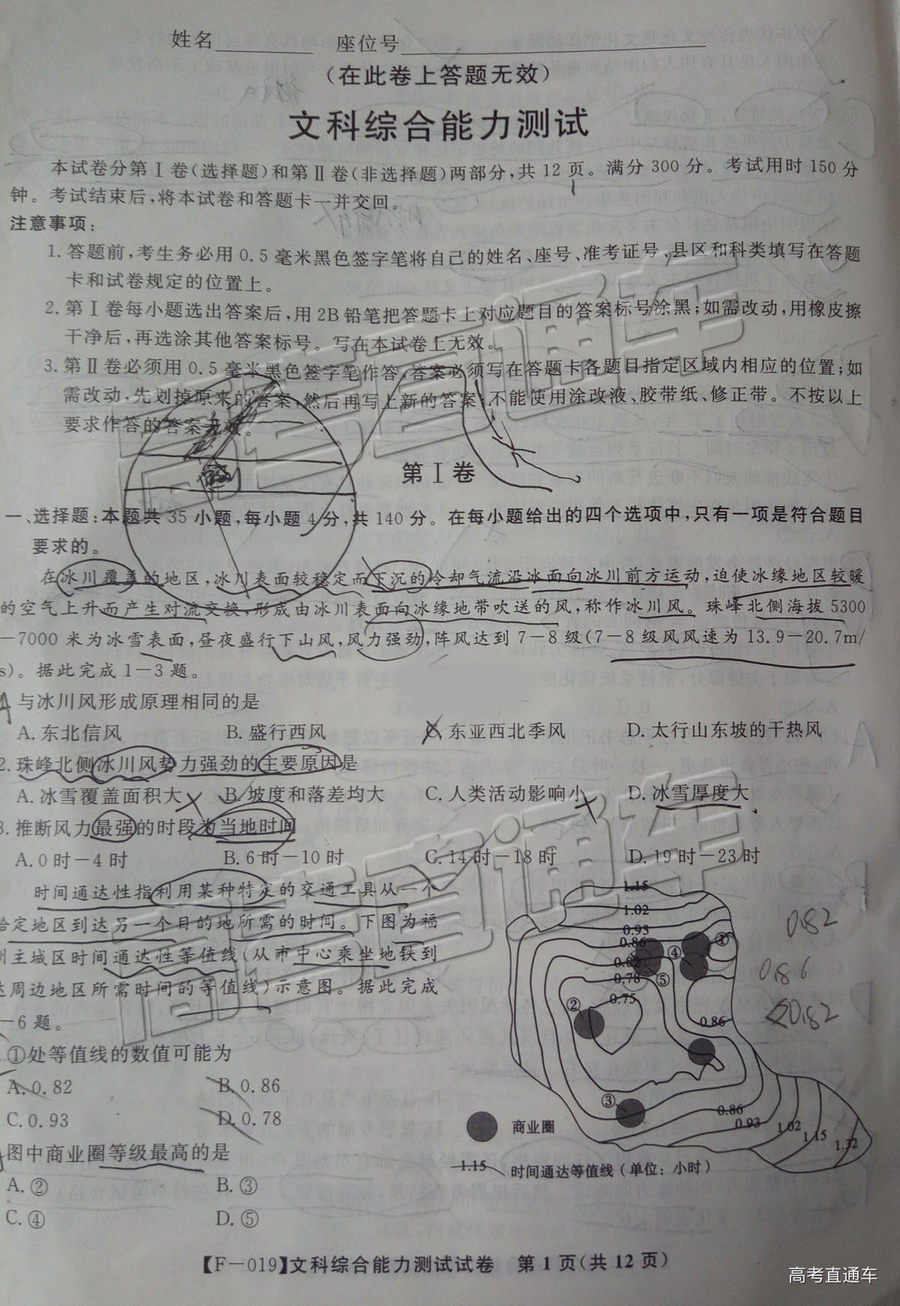 姓名 座位号
（在此卷上答题无效）
文科综合能力测试
本试卷分第Ⅰ卷(选择题)和第Ⅱ卷(非选择题)两部分,共12页。满分300分。考试用时150分
钟。考试结束后,将本试卷和答题卡一并交回。
注意事项:
1.答题前,考生务必用0.5毫米黑色签字笔将自己的姓名、座号、准考证号、县区和科类填写在答题
卡和试卷规定的位置上。
2.第Ⅰ卷每小题选出答案后,用2B铅笔把答题卡上对应题目的答案标号涂黑;如需改动,用橡皮擦
干净后,再选涂其他答案标号。写在本试卷上无效。
3.第Ⅱ卷必须用0.5毫米黑色签字笔作答,答案必须写在答题卡各题目指定区域内相应的位置;如
需改动,先划掉原来的答案,然后再写上新的答案;不能使用涂改液、胶带纸、修正带。不按以上
要求作答的答案无效。
第Ⅰ卷
一、选择题:本题共35小题,每小题4分,共140分。在每小题给出的四个选项中,只有一项是符合题目
要求的。
在冰川覆盖的地区,冰川表面较稳定而下沉的冷却气流沿冰面向冰川前方运动,迫使冰缘地区较暖
的空气上升而产生对流交换,形成由冰川表面向冰缘地带吹送的风,称作冰川风。珠峰北侧海拔5300
-7000米为冰雪表面,昼夜盛行下山风,风力强劲,阵风达到7-8级(7-8级风风速为13.9-20.7m/
s)。据此完成1-3题。
与冰川风形成原理相同的是
A.东北信风 B.盛行西风 东亚西北季风 D.太行山东坡的干热风
2.珠峰北侧冰川风势力强劲的主要原因是
A.冰雪覆盖面积大 B.坡度和落差均大 C.人类活动影响小 D.冰雪厚度大
3.推断风力最强的时段为当地时间
A.0时-4时 B.6时-10时 C.14时-18时 D.19时-23时
时间通达性指利用某种特定的交通工具从一个
给定地区到达另一个目的地所需的时间。下图为福
州主城区时间通达性等值线(从市中心乘坐地铁到
达周边地区所需时间的等值线)示意图。据此完成
-6题。
①处等值线的数值可能为
A.0.82 B.0.86
C.0.93 D.0.78
图中商业圈等级最高的是
A.② B.③
C.④ D.⑤
1.15
1.02
0.93
0.86
0.82
0.78
0.75
①
④
⑤
②
③
0.86
0.86
0.93
1.02
1.15
1.32
商业圈
1.15 时间通达等值线(单位:小时)
0.82
0.86
<0.82
【F-019】文科综合能力测试试卷 第1页(共12页)
高考直通车
高考直通车
高考直通车